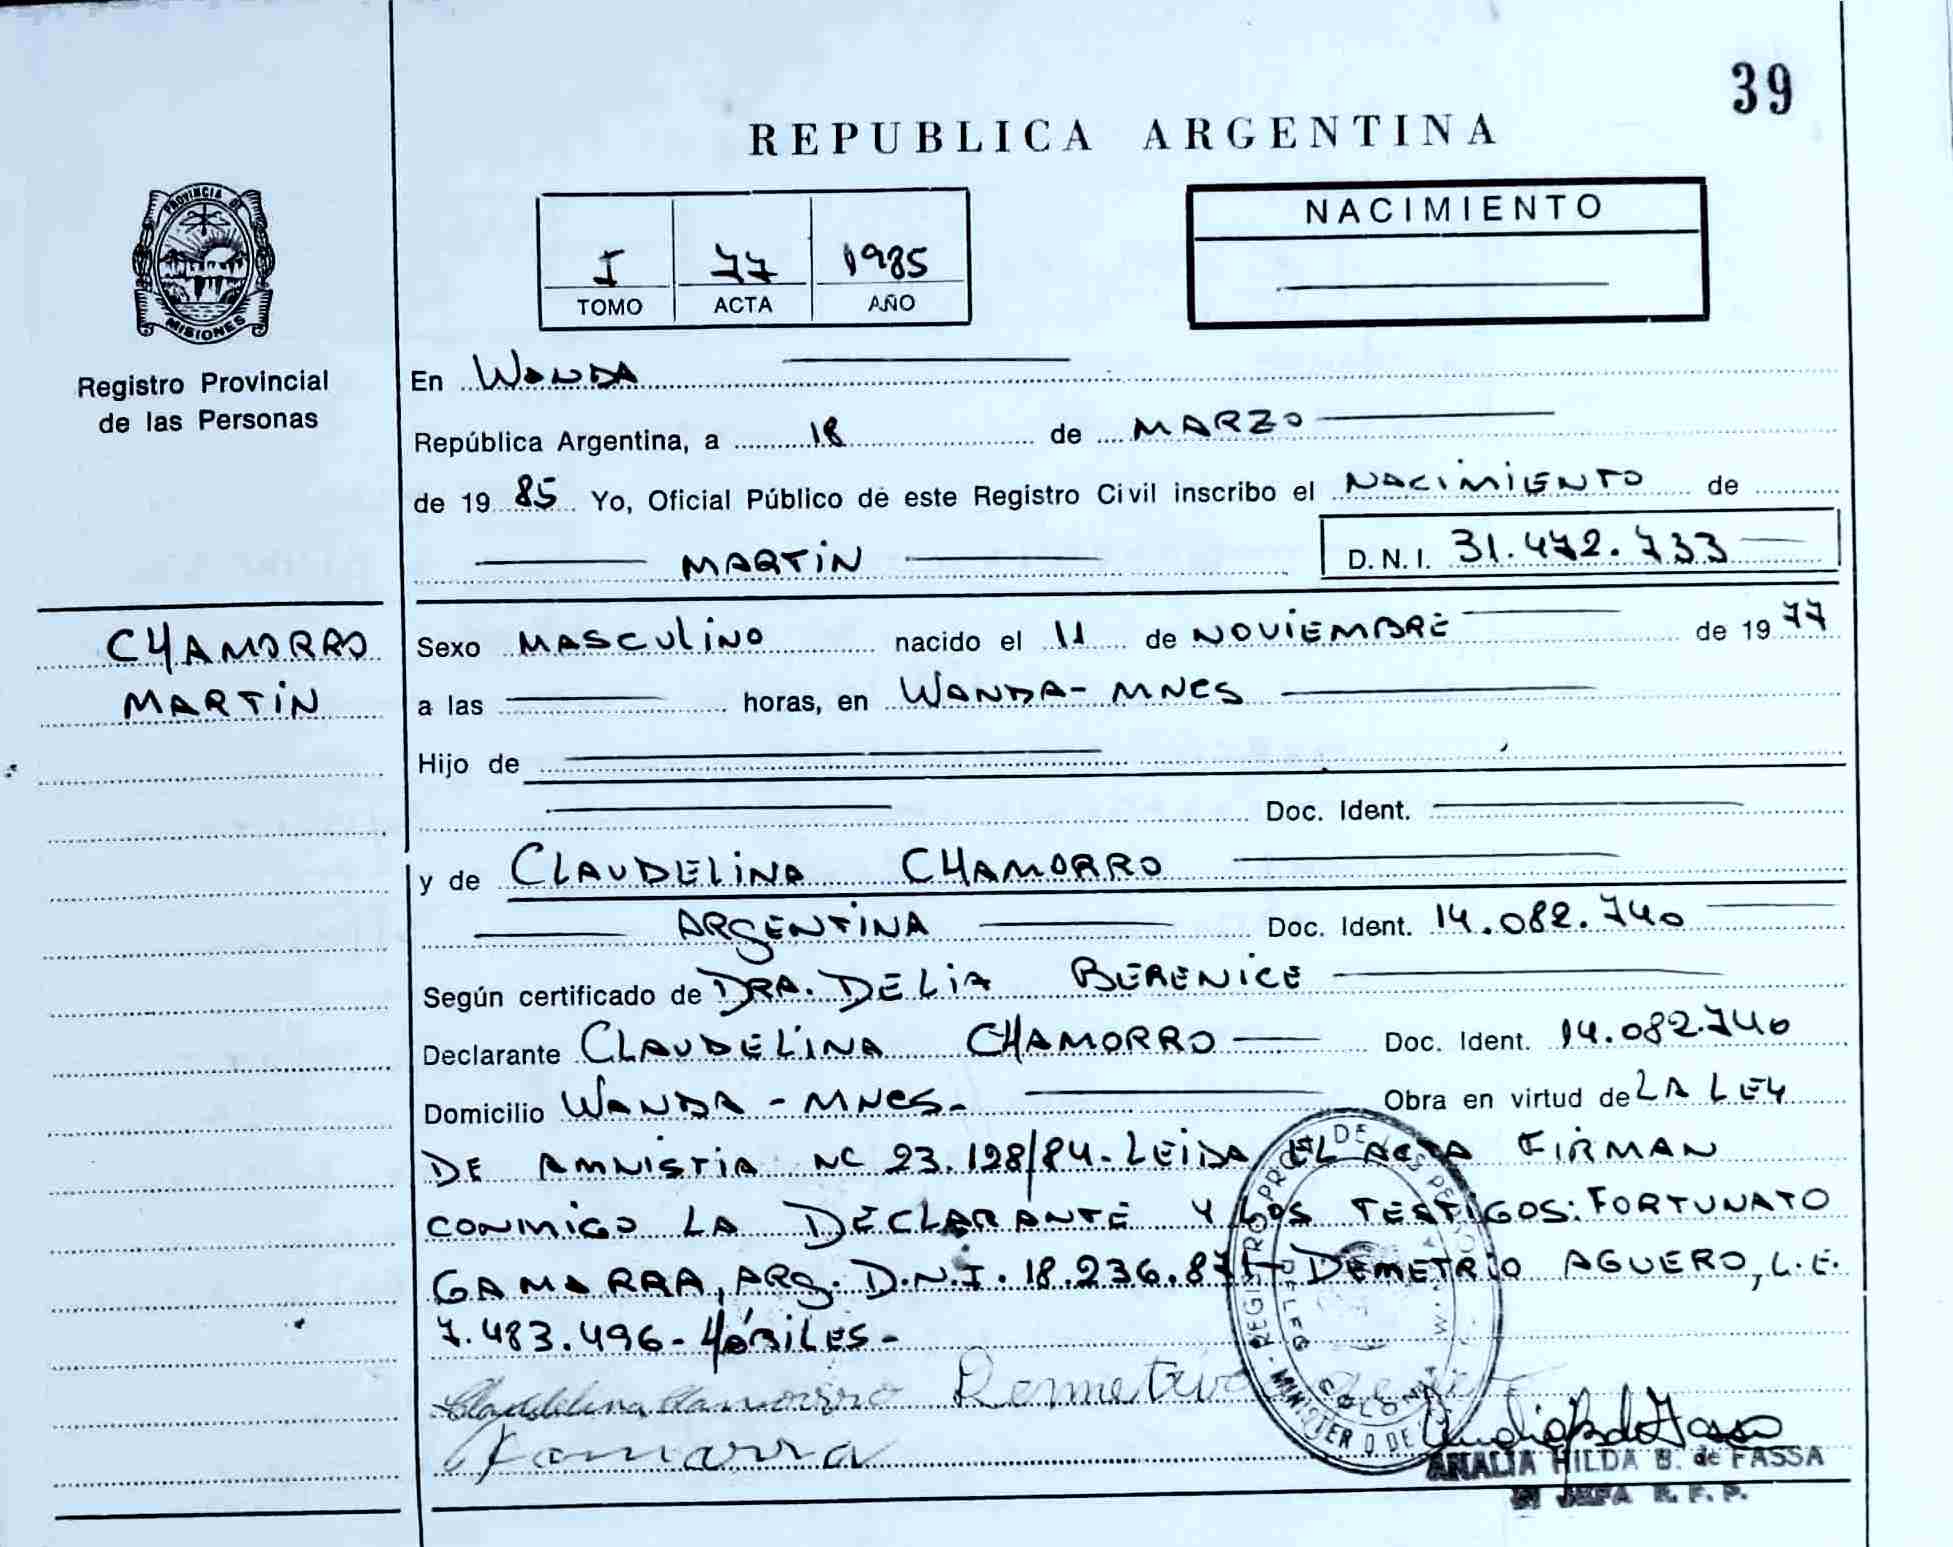 39
REPUBLICA ARGENTINA
PROVINCIA DE
MISIONES
Registro Provincial
de las Personas
I 77 1985
TOMO ACTA AÑO
NACIMIENTO
En WANDA
República Argentina, a 18 de MARZO
de 19 85 Yo, Oficial Público de este Registro Civil inscribo el NACIMIENTO de
MARTIN D.N.I. 31.472.733
CHAMORRO
MARTIN
Sexo MASCULINO nacido el 11 de NOVIEMBRE de 19 77
a las horas, en WANDA - MNES
Hijo de
Doc. Ident.
y de CLAUDELINA CHAMORRO
ARGENTINA Doc. Ident. 14.082.740
Según certificado de DRA. DELIA BERENICE
Declarante CLAUDELINA CHAMORRO Doc. Ident. 14.082.740
Domicilio WANDA - MNES - Obra en virtud de LA LEY
DE AMNISTIA NC 23.128/84 - LEIDA EL ACTA FIRMAN
CONMIGO LA DECLARANTE Y LOS TESTIGOS: FORTUNATO
GAMARRA, ARG. D.N.I. 18.236. DEMETRIO AGUERO, L.E.
7.483.496 - HÁBILES -
Claudelina Chamorro Demetrio
Gamarra
ANALIA HILDA B. de FASSA
JEFA R. P. P.